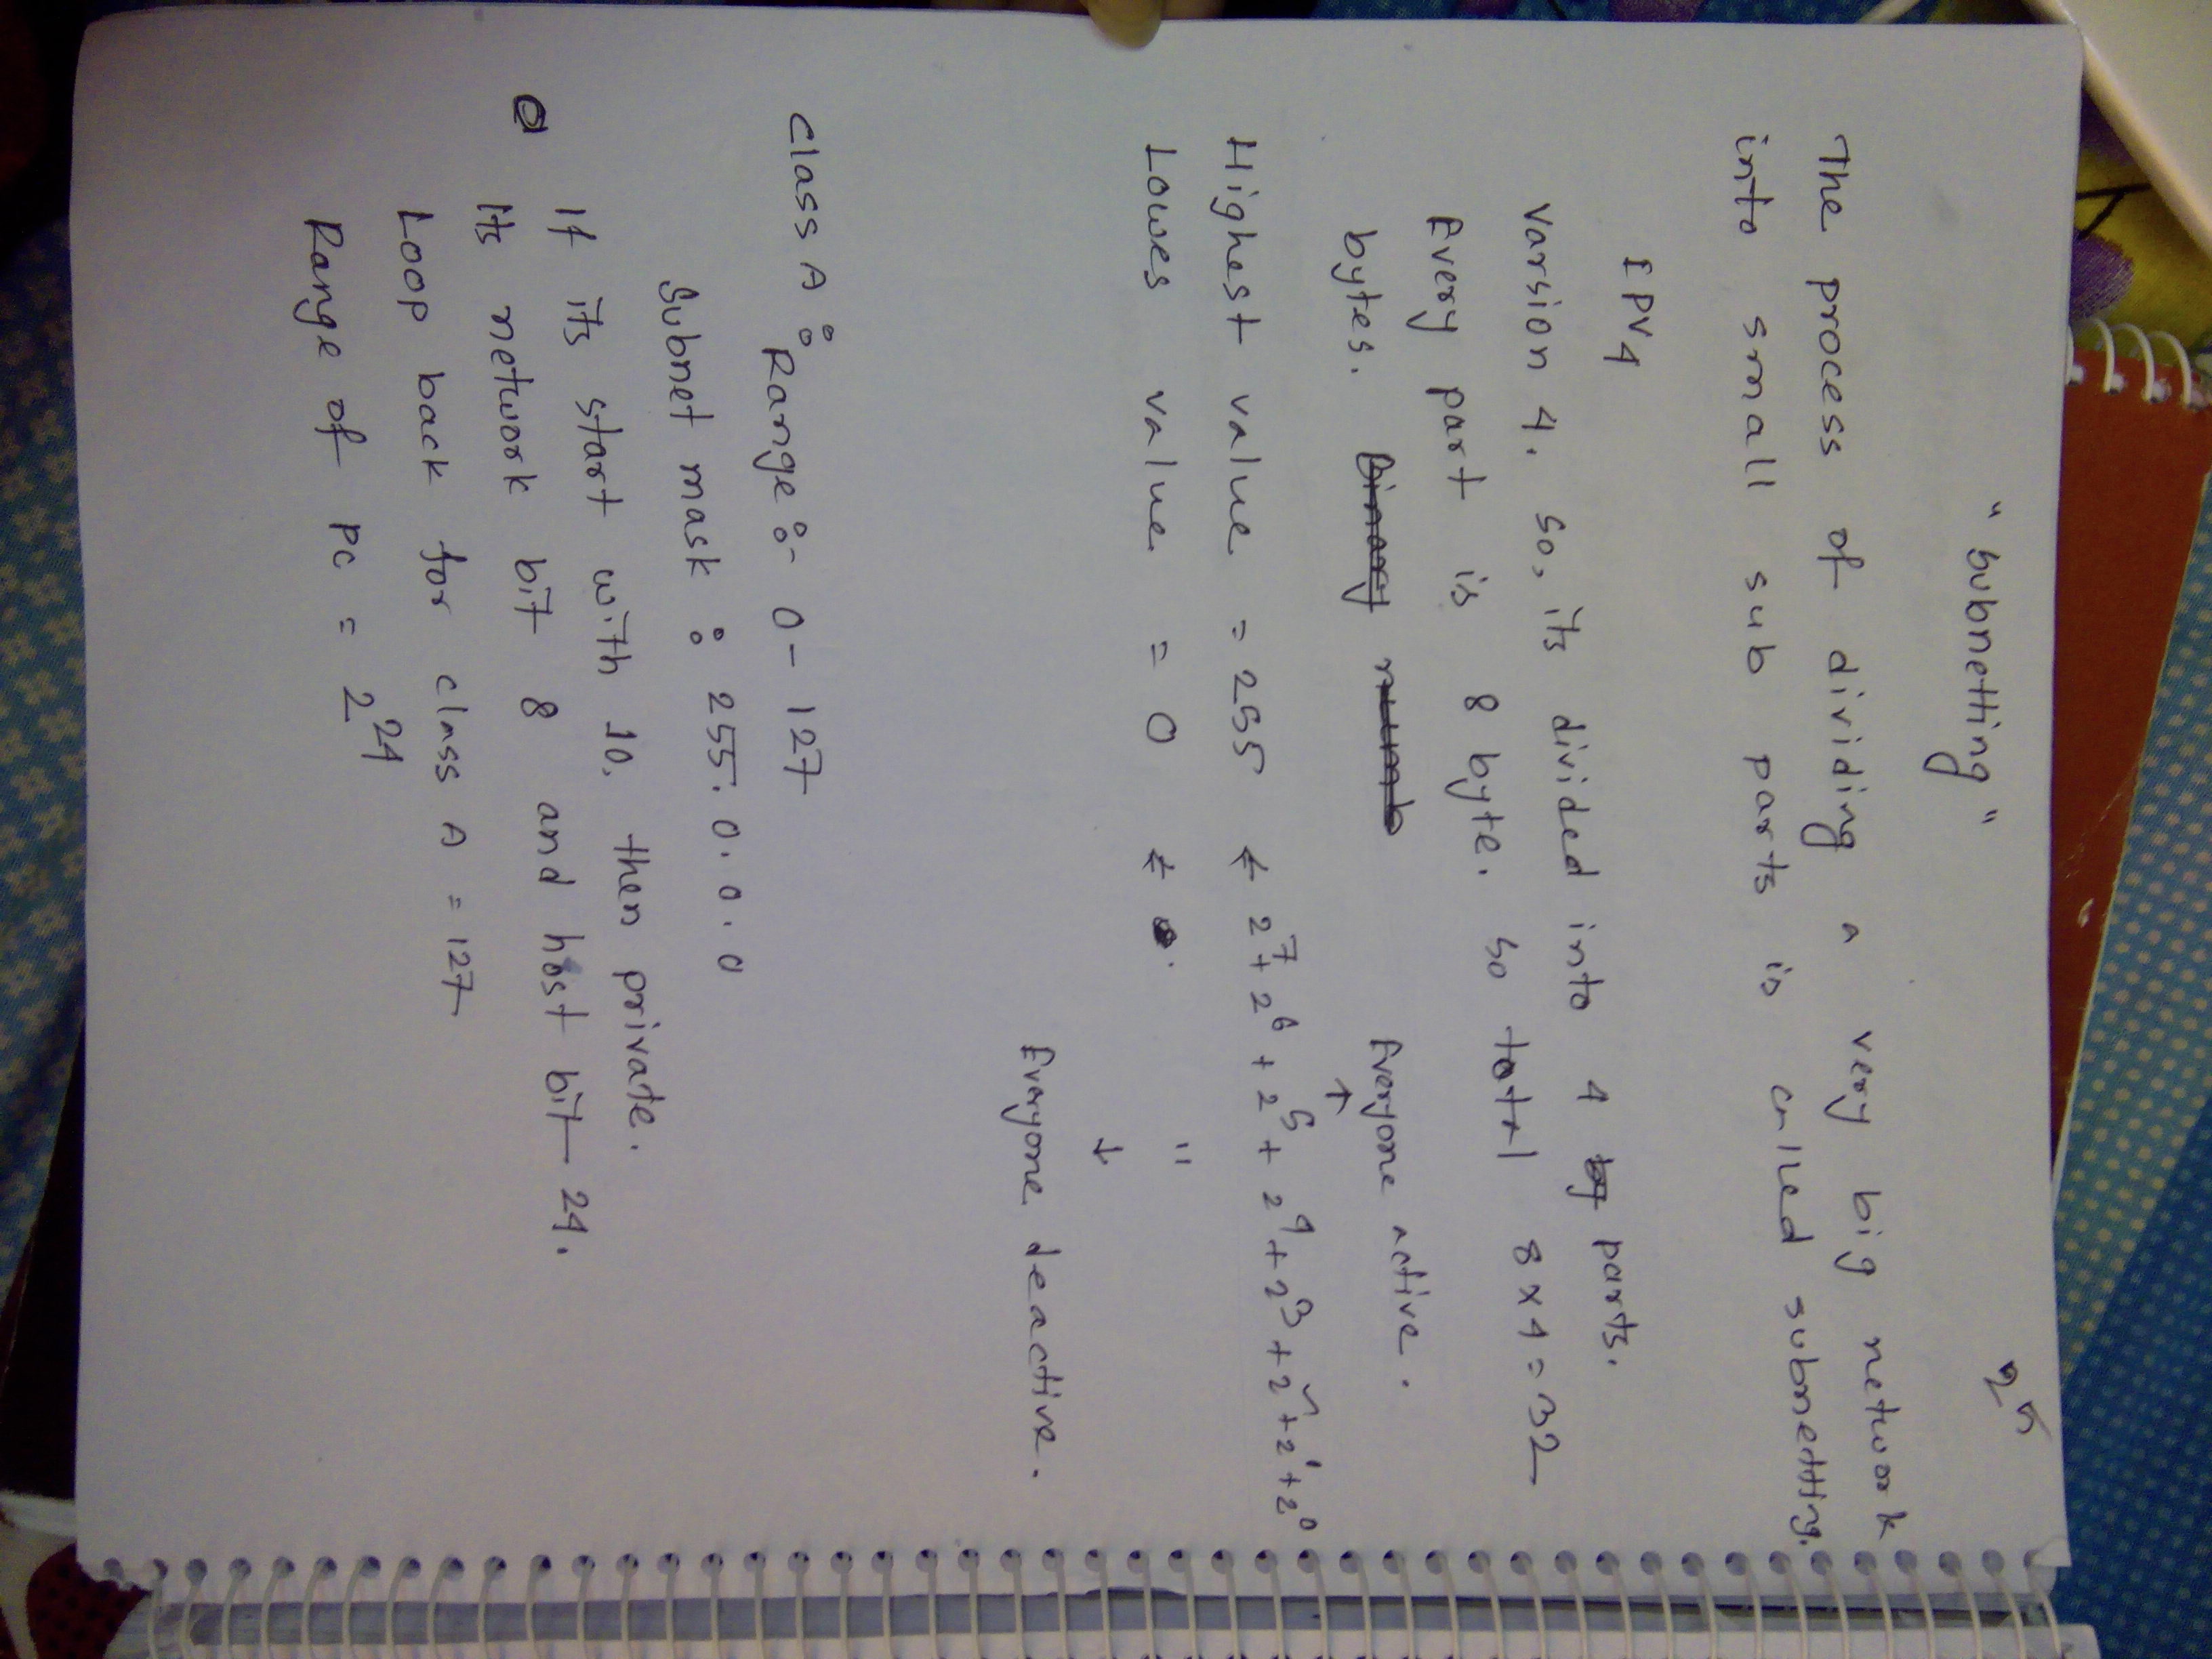 25
"Subnetting"
The process of dividing a very big network
into small sub parts is called subnetting.
IPV4
Varsion 4. So, its divided into 4 by parts.
Every part is 8 byte. So total 8×4=32
bytes. Binary numb
Everyone active.
↑
Highest value = 255 ← 2⁷+2⁶+2⁵+2⁴+2³+2²+2¹+2⁰
Lowes value = 0 ← "
↓
Everyone deactive.
Class A :
Range :- 0 - 127
Subnet mask : 255.0.0.0
If its start with 10, then private.
Its network bit 8 and host bit 24.
Loop back for class A = 127
Range of PC = 2²⁴